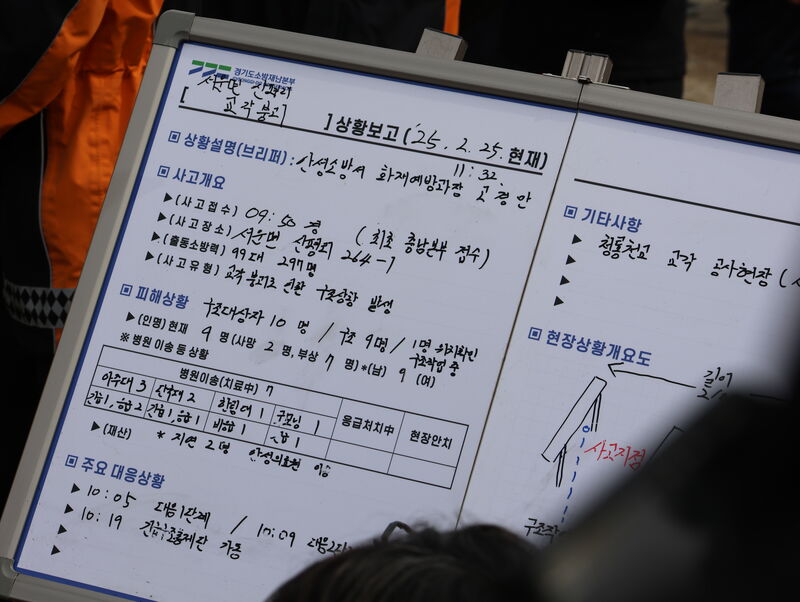 경기도소방재난본부
서운면 산평리
[ 교각 붕괴 ] 상황보고 ('25. 2. 25. 현재)
11:32.
▣ 상황설명(브리퍼) : 안성소방서 화재예방과장 고경만
▣ 사고개요
▶ (사고 접수) 09:50 경 (최초 충남본부 접수)
▶ (사고 장소) 서운면 산평리 264-1
▶ (출동소방력) 99대 297명
▶ (사고 유형) 교각 붕괴로 인한 구조상황 발생
▣ 피해상황 구조대상자 10명 / 구조 9명 / 1명 위치확인
구조작업 중
▶ (인명) 현재 9명 (사망 2명, 부상 7명) *(남) 9 (여)
※ 병원 이송 등 상황
병원이송(치료中) 7 응급처치中 현장안치
아주대 3 단국대 2 한림대 1 굿모닝 1
긴급1, 응급2 긴급1, 응급1 비응급1 긴급1
▶ (재산) * 지연 2명 안성의료원 이송
▣ 주요 대응상황
▶ 10:05 대응1단계 / 10:09 대응2단
▶ 10:19 긴급구조통제단 가동
▣ 기타사항
▶ 청룡천교 교각 공사현장 (
▣ 현장상황개요도
길이
사고지점
구조